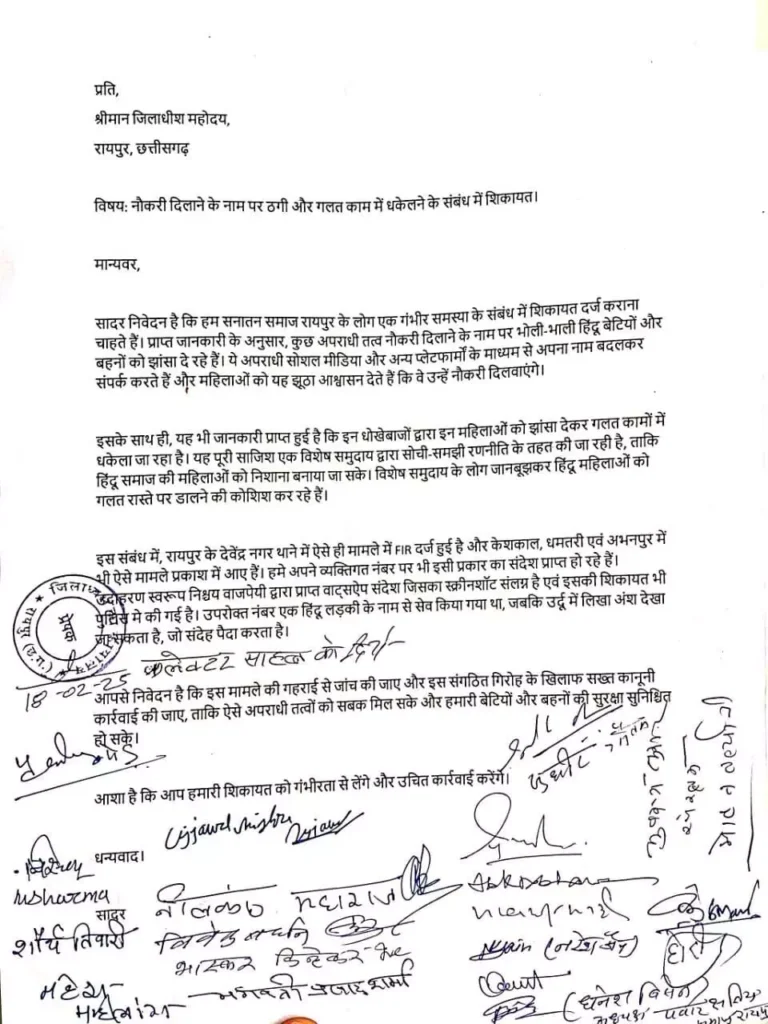 प्रति,
श्रीमान जिलाधीश महोदय,
रायपुर, छत्तीसगढ़
विषय: नौकरी दिलाने के नाम पर ठगी और गलत काम में धकेलने के संबंध में शिकायत।
मान्यवर,
सादर निवेदन है कि हम सनातन समाज रायपुर के लोग एक गंभीर समस्या के संबंध में शिकायत दर्ज कराना
चाहते हैं। प्राप्त जानकारी के अनुसार, कुछ अपराधी तत्व नौकरी दिलाने के नाम पर भोली-भाली हिंदू बेटियों और
बहनों को झांसा दे रहे हैं। ये अपराधी सोशल मीडिया और अन्य प्लेटफार्मों के माध्यम से अपना नाम बदलकर
संपर्क करते हैं और महिलाओं को यह झूठा आश्वासन देते हैं कि वे उन्हें नौकरी दिलवाएंगे।
इसके साथ ही, यह भी जानकारी प्राप्त हुई है कि इन धोखेबाजों द्वारा इन महिलाओं को झांसा देकर गलत कामों में
धकेला जा रहा है। यह पूरी साजिश एक विशेष समुदाय द्वारा सोची-समझी रणनीति के तहत की जा रही है, ताकि
हिंदू समाज की महिलाओं को निशाना बनाया जा सके। विशेष समुदाय के लोग जानबूझकर हिंदू महिलाओं को
गलत रास्ते पर डालने की कोशिश कर रहे हैं।
इस संबंध में, रायपुर के देवेंद्र नगर थाने में ऐसे ही मामले में FIR दर्ज हुई है और केशकाल, धमतरी एवं अभनपुर में
भी ऐसे मामले प्रकाश में आए हैं। हमे अपने व्यक्तिगत नंबर पर भी इसी प्रकार का संदेश प्राप्त हो रहे हैं।
उदाहरण स्वरूप निश्चय वाजपेयी द्वारा प्राप्त वाट्सऐप संदेश जिसका स्क्रीनशॉट संलग्न है एवं इसकी शिकायत भी
पुलिस मे की गई है। उपरोक्त नंबर एक हिंदू लड़की के नाम से सेव किया गया था, जबकि उर्दू में लिखा अंश देखा
जा सकता है, जो संदेह पैदा करता है।
18-02-25 कलेक्टर साहब को
आपसे निवेदन है कि इस मामले की गहराई से जांच की जाए और इस संगठित गिरोह के खिलाफ सख्त कानूनी
कार्रवाई की जाए, ताकि ऐसे अपराधी तत्वों को सबक मिल सके और हमारी बेटियों और बहनों की सुरक्षा सुनिश्चित
हो सके।
आशा है कि आप हमारी शिकायत को गंभीरता से लेंगे और उचित कार्रवाई करेंगे।
धन्यवाद।
सादर
नीलकंठ
शौर्य तिवारी
भगवती प्रसाद शर्मा